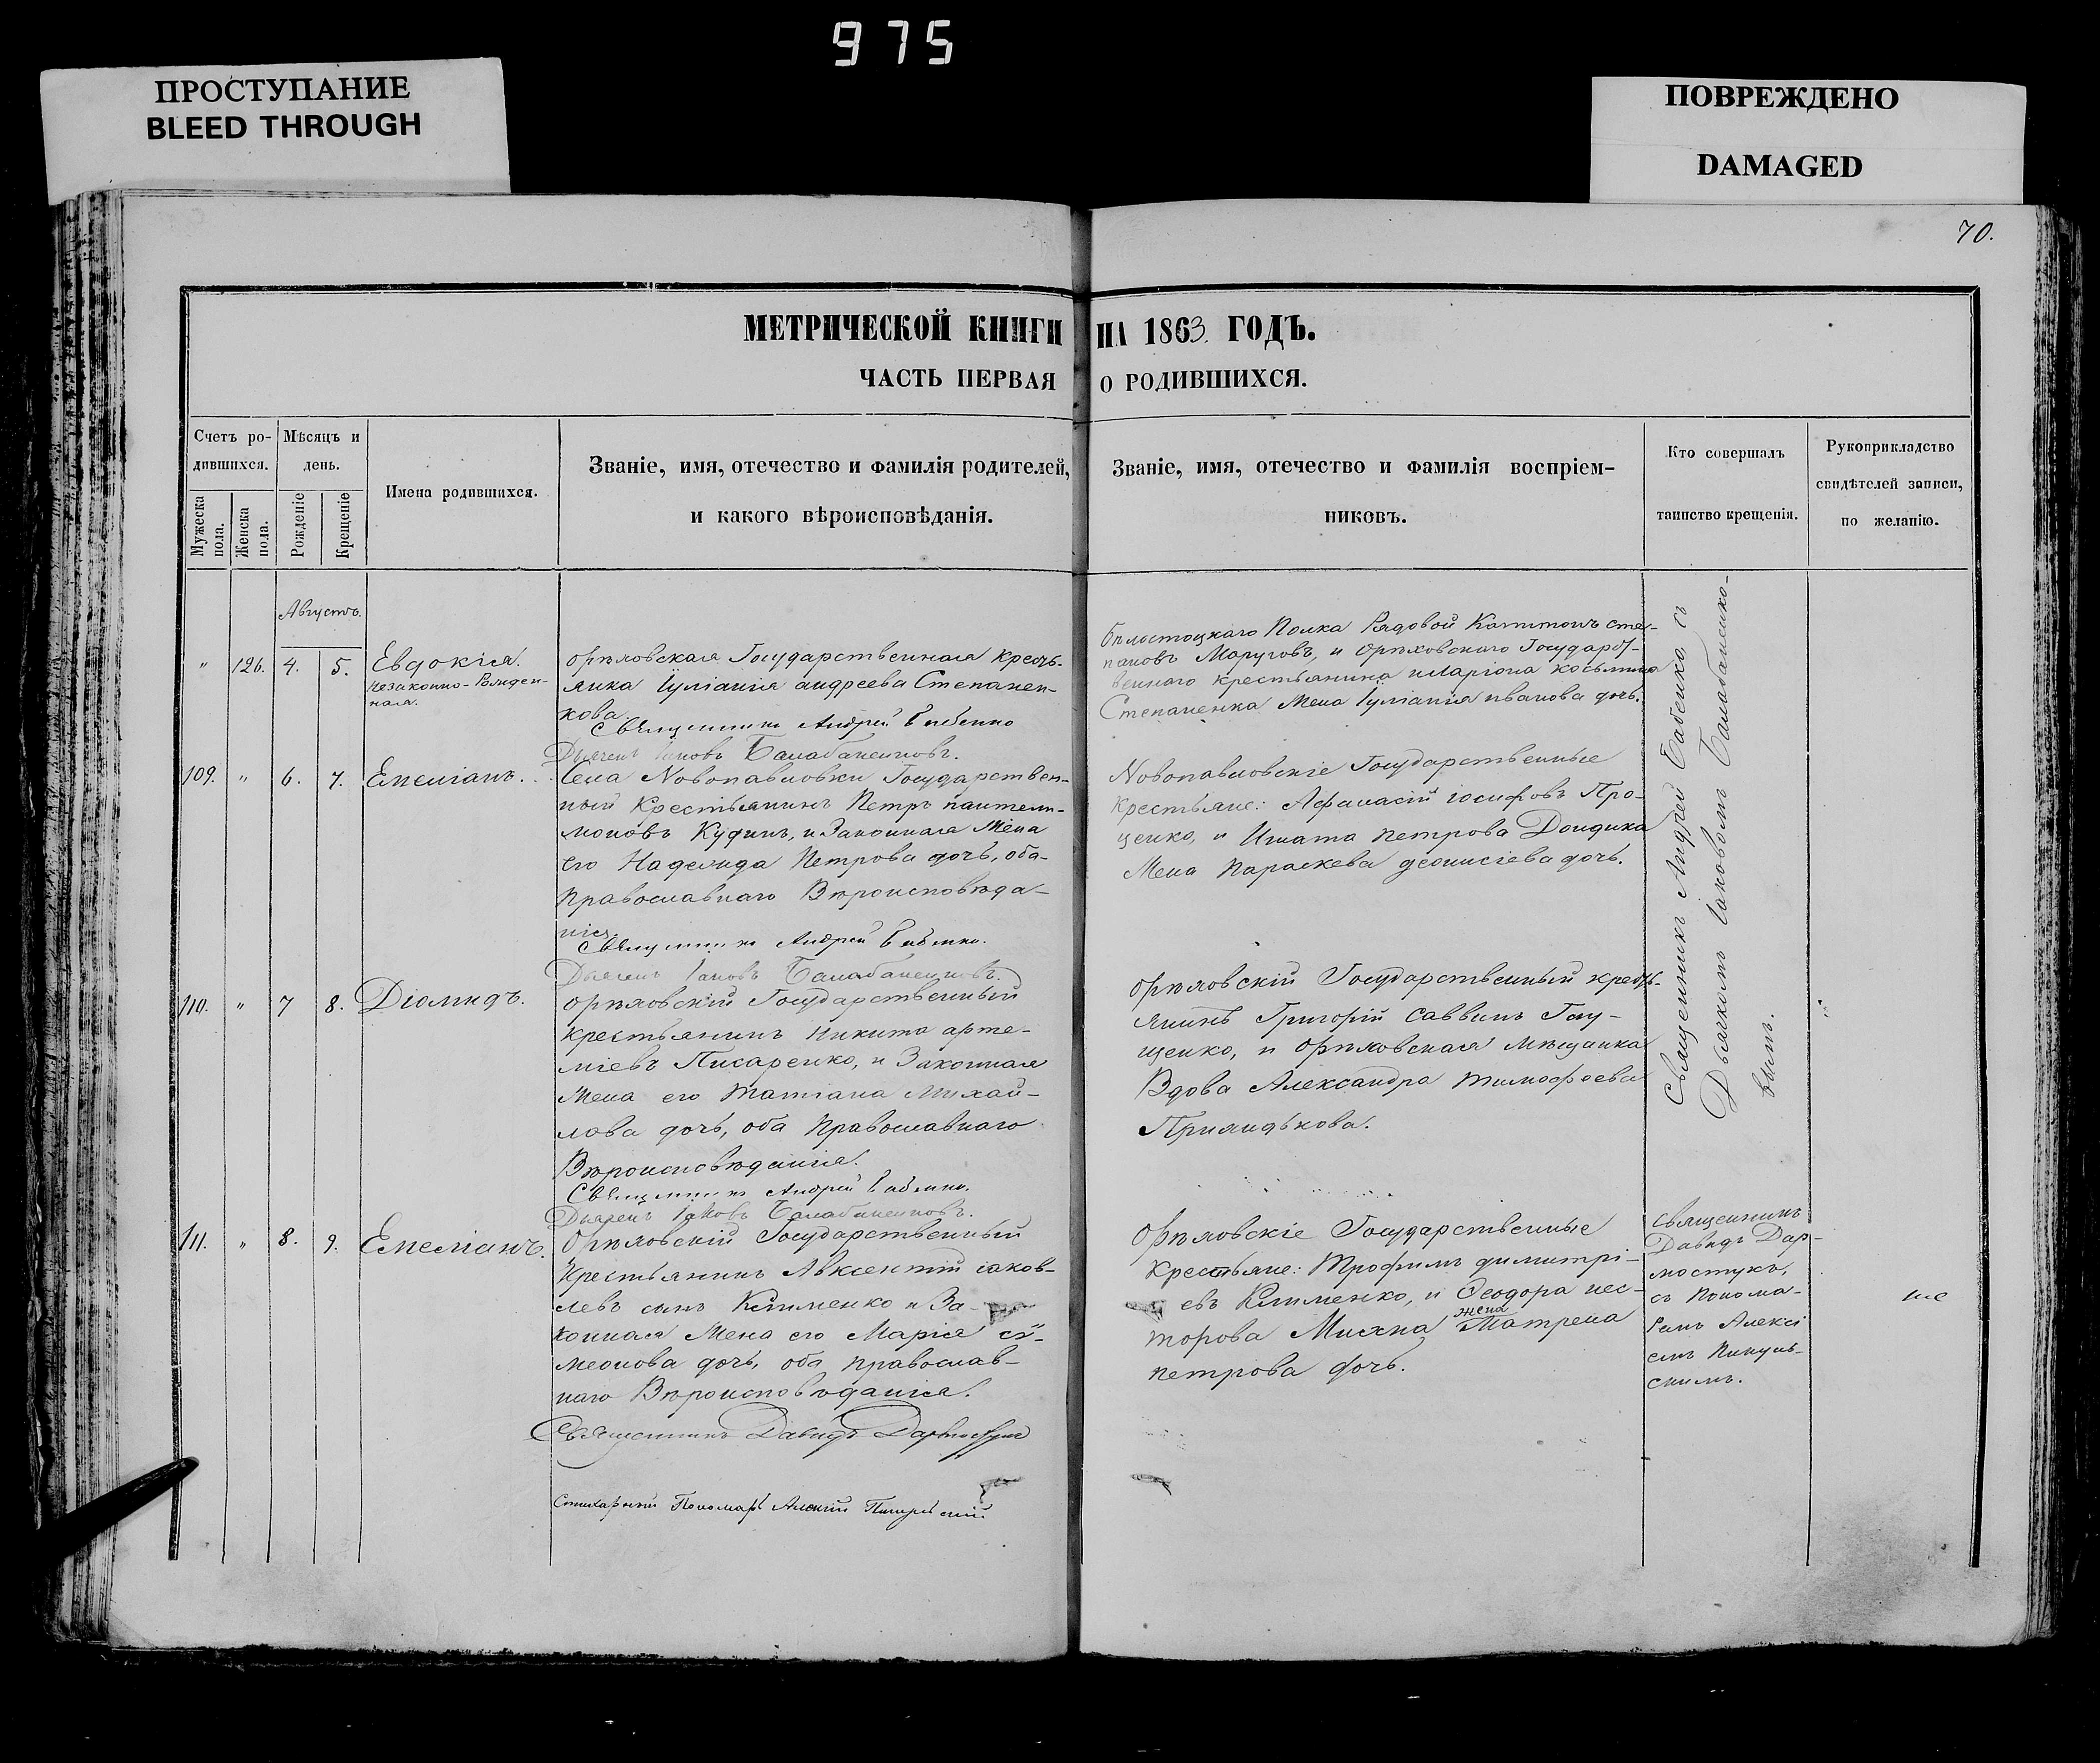 975
ПРОСТУПАНИЕ
BLEED THROUGH
ПОВРЕЖДЕНО
DAMAGED
70.
МЕТРИЧЕСКОЙ КНИГИ НА 1863. ГОДЪ.
ЧАСТЬ ПЕРВАЯ О РОДИВШИХСЯ.
Счетъ ро-
дившихся.
Мужеска
пола.
Женска
пола.
Мѣсяцъ и
день.
Рожденіе
Крещеніе
Имена родившихся.
Званіе, имя, отечество и фамилія родителей,
и какого вѣроисповѣданія.
Званіе, имя, отечество и фамилія воспріем-
никовъ.
Кто совершалъ
таинство крещенія.
Рукоприкладство
свидѣтелей записи,
по желанію.
Августъ.
" 126. 4. 5. Евдокія.
Незаконно-Рожден-
ная.
Орѣховская Государственная кресть-
янка Іуліанія андреева Степанен-
кова.
Священникъ Андрей Бабенко
Дьячекъ Іаковъ Балабаненковъ.
Бѣлостоцкаго Полка Рядовой Капитонъ сте-
пановъ Моруговъ, и Орѣховскаго Государст-
веннаго крестьянина иларіона косьмина
Степаненка Жена Іуліанія иванова дочь.
109. " 6. 7. Емеліанъ.
Села Новопавловки Государствен-
ный Крестьянинъ Петръ пантели-
моновъ Кудинъ, и Законная Жена
его Надежда Петрова дочь, оба
Православнаго Вѣроисповѣда-
нія.
Священникъ Андрей Бабенко.
Дьячекъ Іаковъ Балабаненковъ.
Новопавловскіе Государственные
крестьяне: Афанасій іосифовъ Про-
ценко, и Игната петрова Дондика
Жена Параскева деонисіева дочь.
110. " 7 8. Діомидъ.
Орѣховскій Государственный
крестьянинъ Никита арте-
міевъ Писаренко, и Законная
Жена его Татіана Михай-
лова дочь, оба Православнаго
Вѣроисповѣданія.
Священникъ Андрей Бабенко.
Дьячекъ Іаковъ Балабаненковъ.
Орѣховскій Государственный кресть-
янинъ Григорій Саввинъ
и Орѣховская мѣщанка
Вдова Александра тимофеева
Священникъ Андрей Бабенко, съ
Дьячкомъ Іаковомъ Балабаненко-
вымъ.
111. " 8. 9. Емеліанъ.
Орѣховскій Государственный
Крестьянинъ Авксентій іаков-
левъ сынъ Клименко и За-
конная Жена его Марія сѵ-
меонова дочь, оба православ-
наго Вѣроисповѣданія.
Священникъ Давидъ
Стихарный Пономарь Алексій
Орѣховскіе Государственные
Крестьяне: Трофимъ димитрі-
евъ Клименко, и Ѳеодора нес-
торова Михна жена Матрена
петрова дочь.
Священникъ
Давидъ Дар-
мостукъ,
съ Понома-
ремъ Алексі
емъ Пикуль-
скимъ.